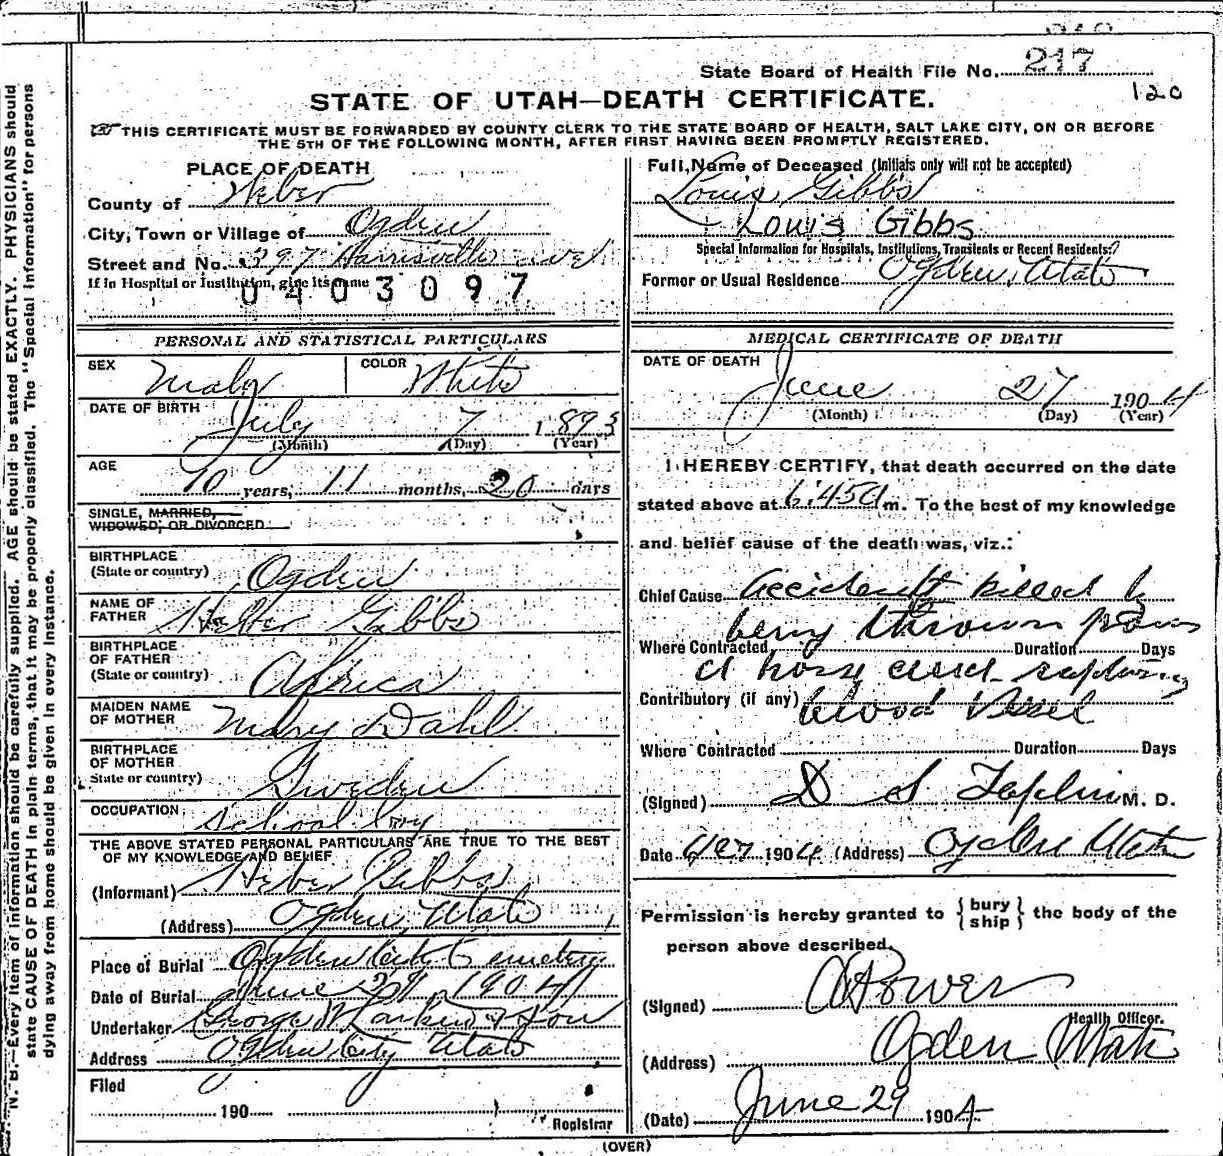 State Board of Health File No. 217
120
STATE OF UTAH—DEATH CERTIFICATE.
THIS CERTIFICATE MUST BE FORWARDED BY COUNTY CLERK TO THE STATE BOARD OF HEALTH, SALT LAKE CITY, ON OR BEFORE
THE 5TH OF THE FOLLOWING MONTH, AFTER FIRST HAVING BEEN PROMPTLY REGISTERED.
PLACE OF DEATH
County of Weber
City, Town or Village of Ogden
Street and No. 397 Harrisville ave
If in Hospital or Institution, give its name
0403097
Full Name of Deceased (Initials only will not be accepted)
Louis Gibbs
Louis Gibbs
Special Information for Hospitals, Institutions, Transients or Recent Residents:
Former or Usual Residence Ogden, Utah
PERSONAL AND STATISTICAL PARTICULARS
SEX Male COLOR White
DATE OF BIRTH July 7 1893
(Month) (Day) (Year)
AGE
10 years, 11 months, 20 days
SINGLE, MARRIED,
WIDOWED, OR DIVORCED
BIRTHPLACE
(State or country) Ogden
NAME OF
FATHER Heber Gibbs
BIRTHPLACE
OF FATHER
(State or country) Africa
MAIDEN NAME
OF MOTHER Mary Dahl
BIRTHPLACE
OF MOTHER
State or country) Sweden
OCCUPATION School boy
THE ABOVE STATED PERSONAL PARTICULARS ARE TRUE TO THE BEST
OF MY KNOWLEDGE AND BELIEF
(Informant) Heber Gibbs
(Address) Ogden, Utah
Place of Burial Ogden City Cemetery
Date of Burial June 29 1904
Undertaker George W Larkin & Son
Address Ogden City Utah
Filed
190
Registrar
MEDICAL CERTIFICATE OF DEATH
DATE OF DEATH
June 27 1904
(Month) (Day) (Year)
I HEREBY CERTIFY, that death occurred on the date
stated above at 6:45 a m. To the best of my knowledge
and belief cause of the death was, viz.:
Chief Cause Accidently killed by
being thrown from
Where Contracted Duration Days
a horse and rupturing
Contributory (if any) blood Vessel
Where Contracted Duration Days
(Signed) D S Taplin M. D.
Date 1904 (Address) Ogden Utah
Permission is hereby granted to {bury
ship} the body of the
person above described.
(Signed) A Power
Health Officer.
(Address) Ogden Utah
(Date) June 29 1904
(OVER)
N. B.—Every item of information should be carefully supplied. AGE should be stated EXACTLY. PHYSICIANS should
state CAUSE OF DEATH in plain terms, that it may be properly classified. The "Special Information" for persons
dying away from home should be given in every instance.